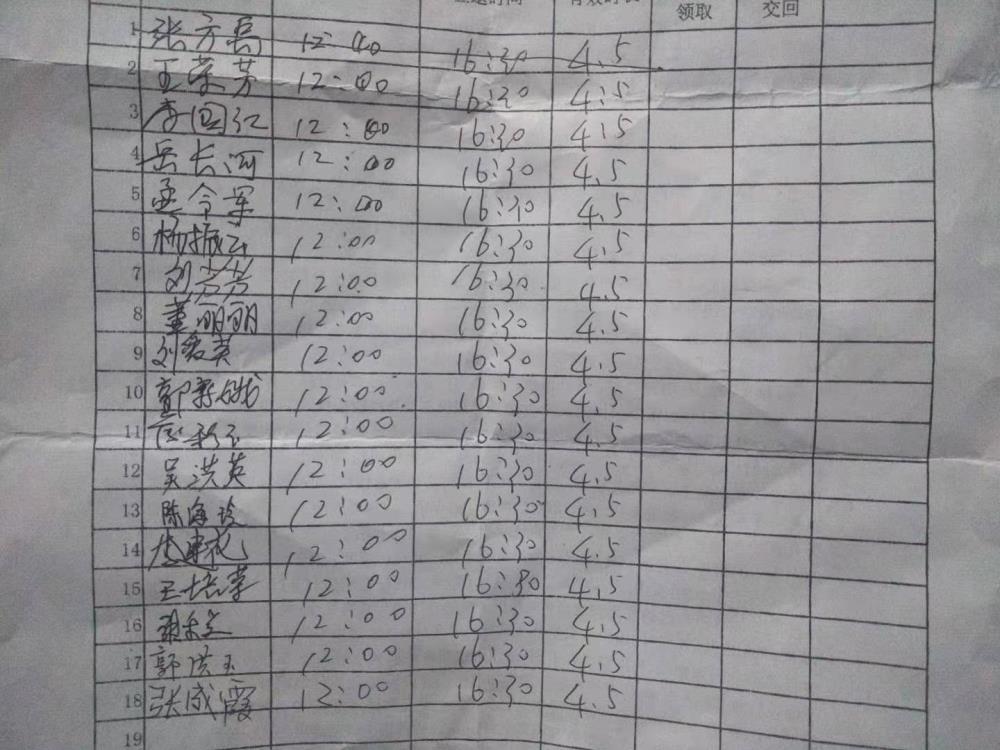 领取 交回
1 张方 12:00 16:30 4.5
2 王荣芳 12:00 16:30 4.5
3 李国红 12:00 16:30 4.5
4 岳长河 12:00 16:30 4.5
5 孟令军 12:00 16:30 4.5
6 杨振 12:00 16:30 4.5
7 刘芳芳 12:00 16:30 4.5
8 董丽丽 12:00 16:30 4.5
9 刘爱英 12:00 16:30 4.5
10 12:00 16:30 4.5
11 12:00 16:30 4.5
12 吴洪英 12:00 16:30 4.5
13 陈海玲 12:00 16:30 4.5
14 12:00 16:30 4.5
15 王培荣 12:00 16:30 4.5
16 12:00 16:30 4.5
17 郭洪玉 12:00 16:30 4.5
18 张成霞 12:00 16:30 4.5
19